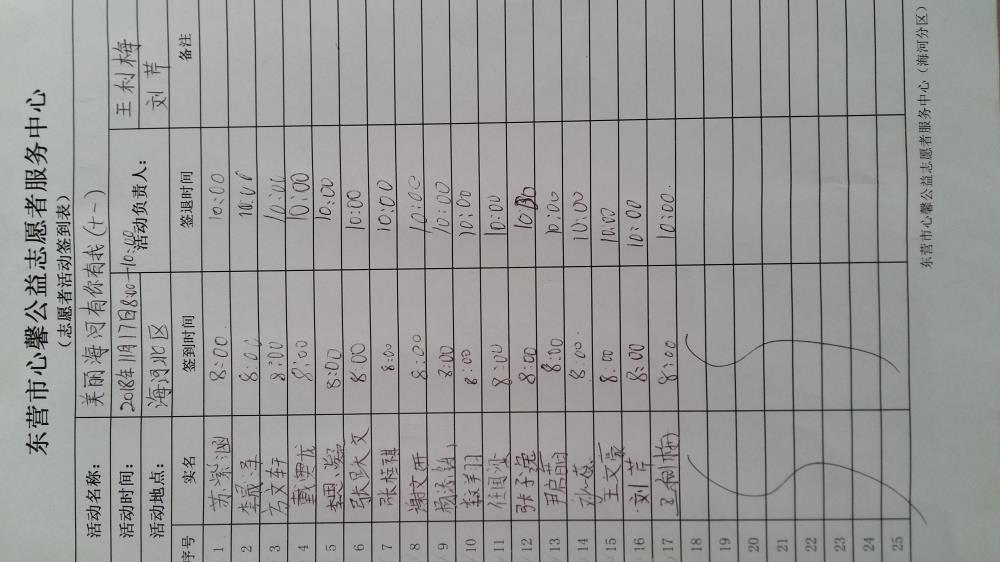 东营市心馨公益志愿者服务中心
（志愿者活动签到表）
活动名称： 美丽海河有你有我(十一)
活动时间： 2018年11月17日8:00-10:00 活动负责人： 王利梅 刘芹
活动地点： 海河北区
序号 实名 签到时间 签退时间 备注
1 苏紫涵 8:00 10:00
2 李晟 8:00 10:00
3 方文轩 8:00 10:00
4 戴雲龙 8:00 10:00
5 李思凝 8:00 10:00
6 张跃文 8:00 10:00
7 张桂祺 8:00 10:00
8 谢文 8:00 10:00
9 杨 8:00 10:00
10 8:00 10:00
11 任国 8:00 10:00
12 张子 8:00 10:00
13 尹启 8:00 10:00
14 孙 8:00 10:00
15 王文 8:00 10:00
16 刘芹 8:00 10:00
17 王利梅 8:00 10:00
18
19
20
21
22
23
24
25
东营市心馨公益志愿者服务中心（海河分区）